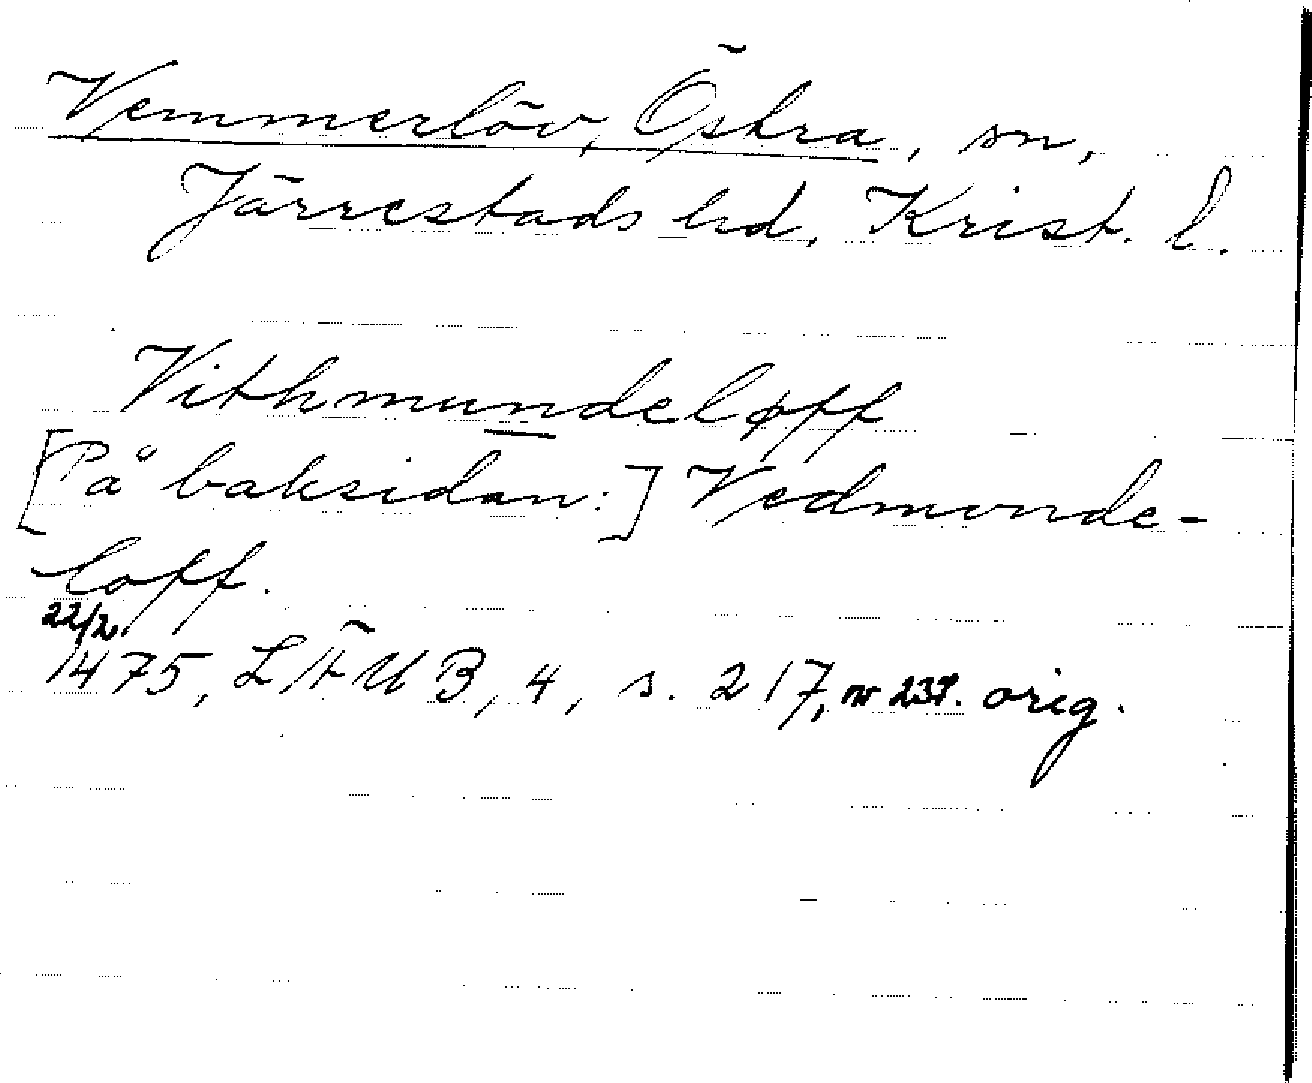 Vemmerlöv, Östra, sn,
Järrestads hd, Krist. l.
Vithmundeløff
[På baksidan:] Vedmonde-
loff.
22/2.
1475, LÄUB, 4, s. 217, nr 237. orig.